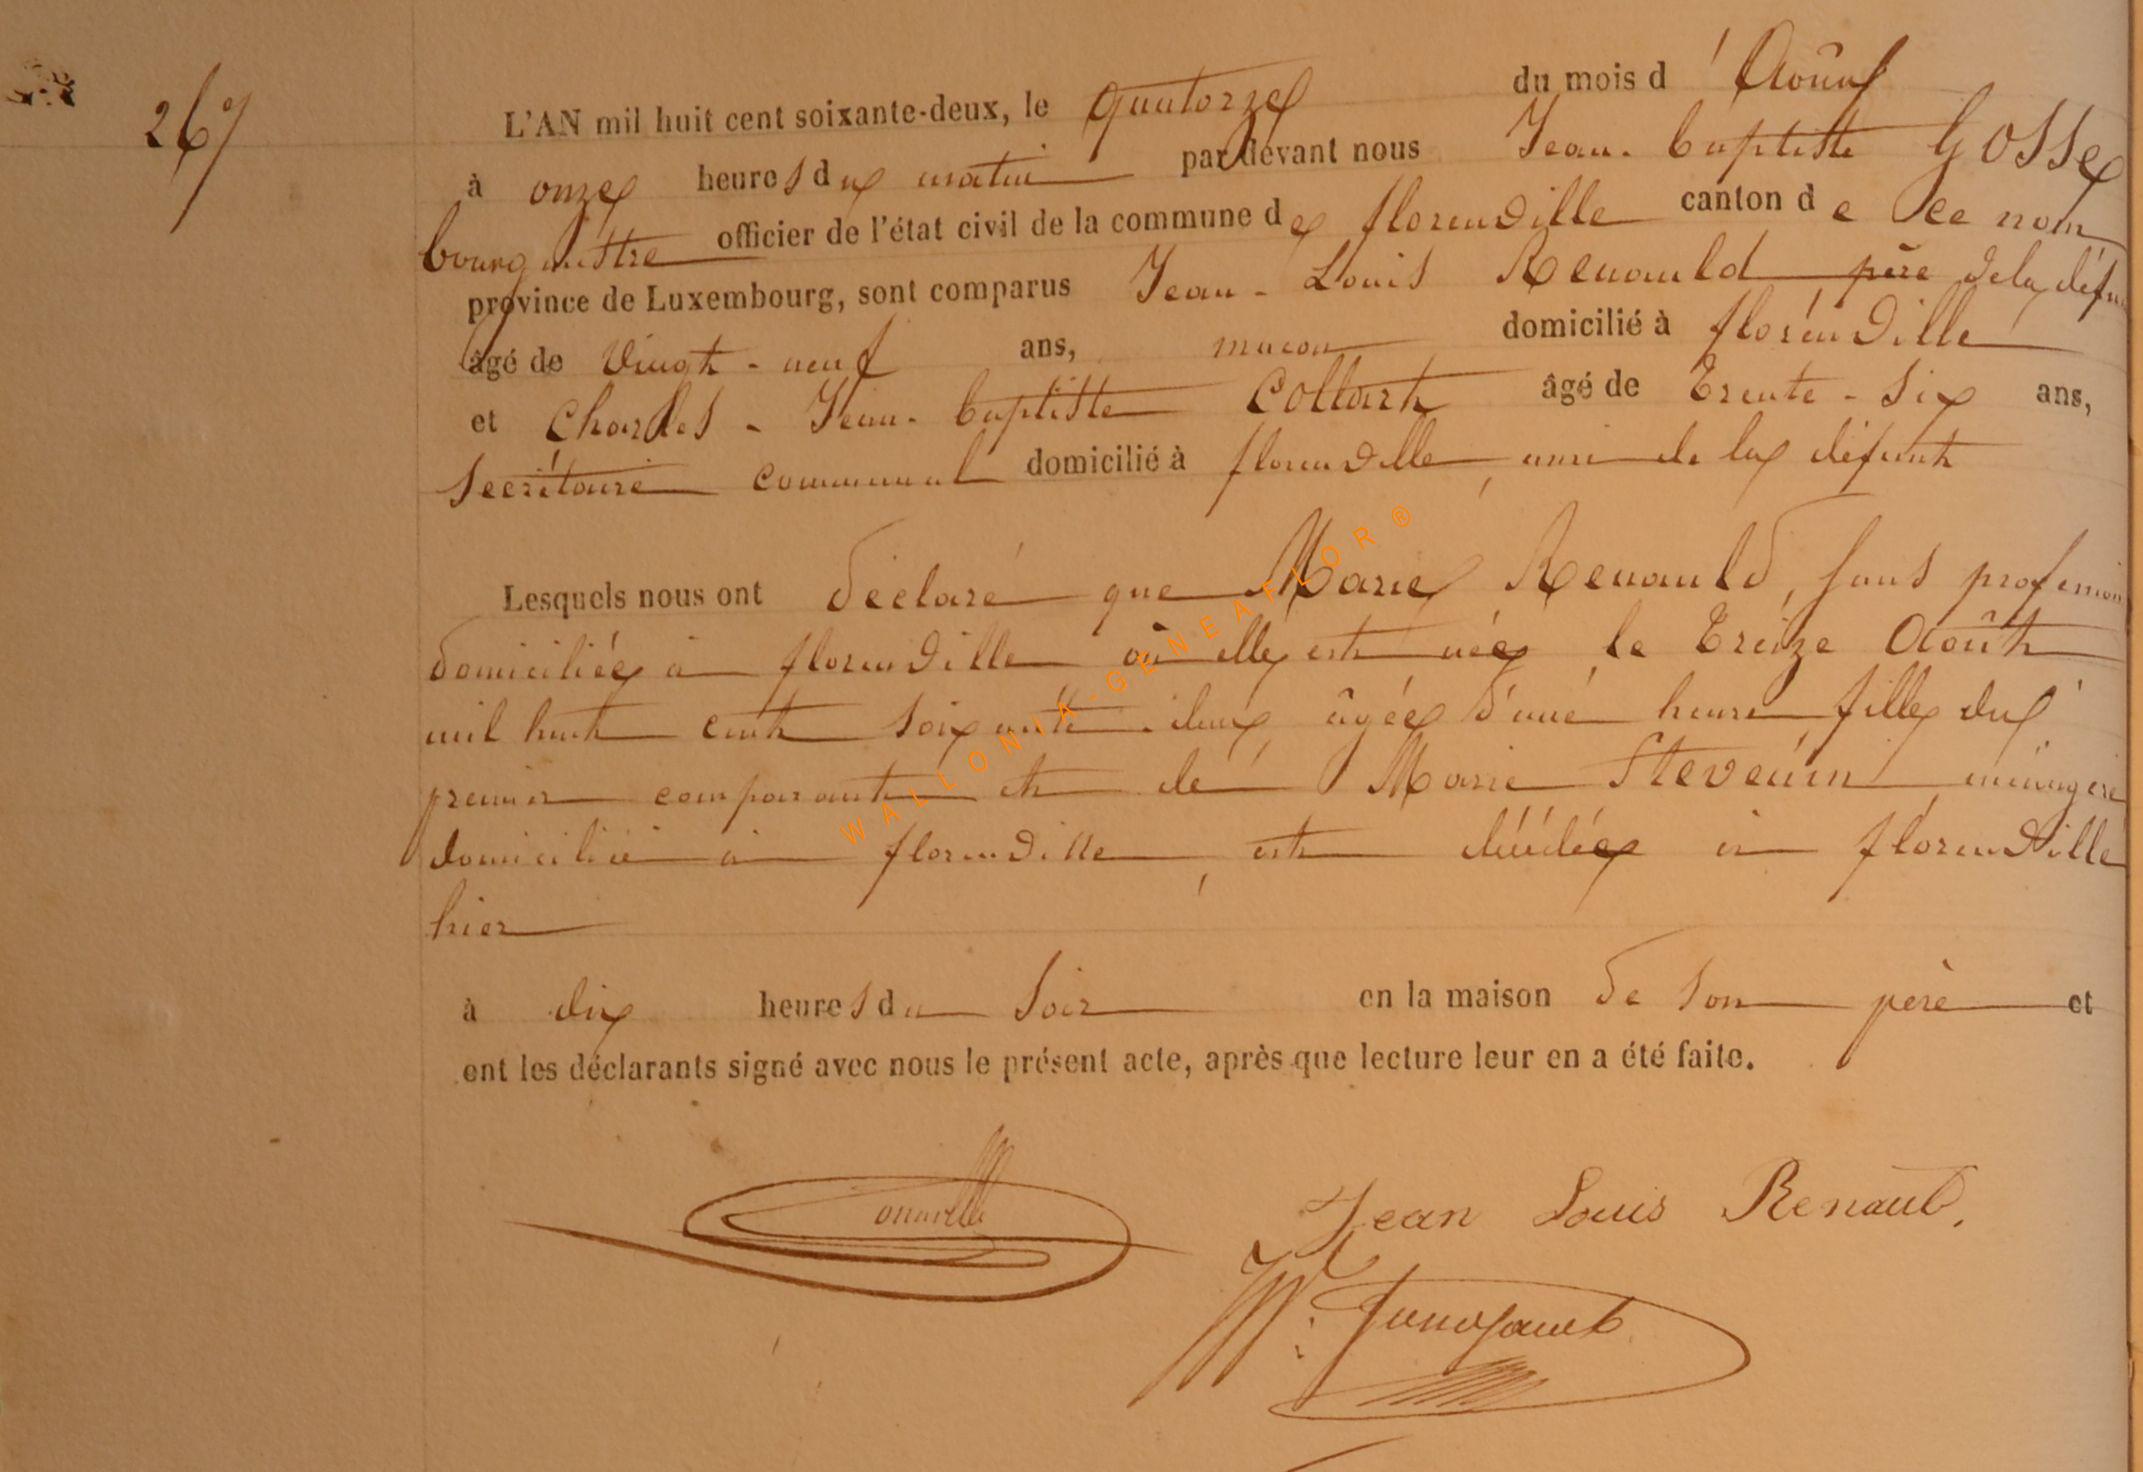 267
L'AN mil huit cent soixante-deux, le quatorze du mois d'Août
à onze heures du matin par devant nous Jean-baptiste Gosse
bourgmestre officier de l'état civil de la commune de florenville canton de ce nom
province de Luxembourg, sont comparus Jean-Louis Renauld père de la défun
âgé de vingt-neuf ans, macon domicilié à florenville
et Charles-Jean-baptiste Collart âgé de trente-six ans,
secrétaire communal domicilié à florenville, ami de la défunte
Lesquels nous ont déclaré que Marie Renauld, sans profession
domiciliée à florenville où elle est née le treize Août
mil huit cent soixante-deux, âgée d'une heure, fille du
premier comparant et de Marie Stevenin, ménagère
domiciliée à florenville, est décédée à florenville
hier
à dix heures du soir en la maison de son père et
ont les déclarants signé avec nous le présent acte, après que lecture leur en a été faite.
Jean Louis Renault.
WALLONIA-GENEAFLOR®